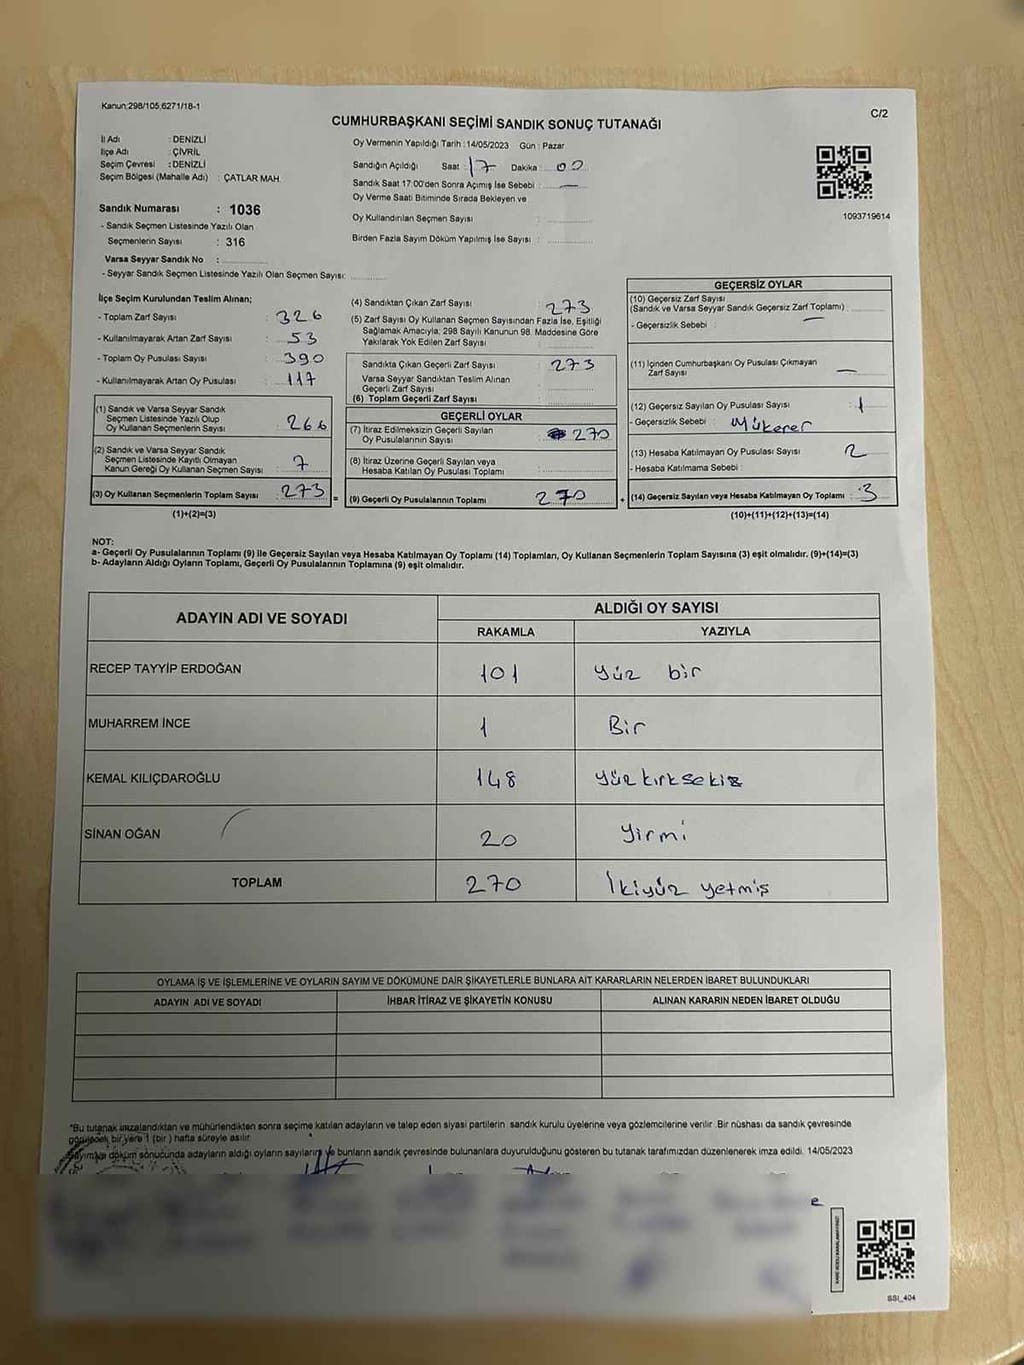 Kanun;298/105,6271/18-1
C/2
CUMHURBAŞKANI SEÇİMİ SANDIK SONUÇ TUTANAĞI
İl Adı : DENİZLİ
İlçe Adı : ÇİVRİL
Seçim Çevresi : DENİZLİ
Seçim Bölgesi (Mahalle Adı) : ÇATLAR MAH.
Sandık Numarası : 1036
- Sandık Seçmen Listesinde Yazılı Olan
Seçmenlerin Sayısı : 316
Varsa Seyyar Sandık No :
- Seyyar Sandık Seçmen Listesinde Yazılı Olan Seçmen Sayısı:
Oy Vermenin Yapıldığı Tarih :14/05/2023 Gün : Pazar
Sandığın Açıldığı Saat : 17 Dakika : 00
Sandık Saat 17:00'den Sonra Açımış İse Sebebi : —
Oy Verme Saati Bitiminde Sırada Bekleyen ve
Oy Kullandırılan Seçmen Sayısı :
Birden Fazla Sayım Döküm Yapılmış İse Sayısı :
1093719614
İlçe Seçim Kurulundan Teslim Alınan;
- Toplam Zarf Sayısı : 326
- Kullanılmayarak Artan Zarf Sayısı : 53
- Toplam Oy Pusulası Sayısı : 390
- Kullanılmayarak Artan Oy Pusulası : 117
(1) Sandık ve Varsa Seyyar Sandık
Seçmen Listesinde Yazılı Olup
Oy Kullanan Seçmenlerin Sayısı : 266
(2) Sandık ve Varsa Seyyar Sandık
Seçmen Listesinde Kayıtlı Olmayan
Kanun Gereği Oy Kullanan Seçmen Sayısı : 7
(3) Oy Kullanan Seçmenlerin Toplam Sayısı : 273
(1)+(2)=(3)
(4) Sandıktan Çıkan Zarf Sayısı : 273
(5) Zarf Sayısı Oy Kullanan Seçmen Sayısından Fazla İse, Eşitliği
Sağlamak Amacıyla; 298 Sayılı Kanunun 98. Maddesine Göre
Yakılarak Yok Edilen Zarf Sayısı :
Sandıkta Çıkan Geçerli Zarf Sayısı : 273
Varsa Seyyar Sandıktan Teslim Alınan
Geçerli Zarf Sayısı :
(6) Toplam Geçerli Zarf Sayısı :
=
GEÇERLİ OYLAR
(7) İtiraz Edilmeksizin Geçerli Sayılan
Oy Pusulalarının Sayısı : 270
(8) İtiraz Üzerine Geçerli Sayılan veya
Hesaba Katılan Oy Pusulası Toplamı :
(9) Geçerli Oy Pusulalarının Toplamı : 270
+
GEÇERSİZ OYLAR
(10) Geçersiz Zarf Sayısı
(Sandık ve Varsa Seyyar Sandık Geçersiz Zarf Toplamı) :
- Geçersizlik Sebebi : —
(11) İçinden Cumhurbaşkanı Oy Pusulası Çıkmayan
Zarf Sayısı : —
(12) Geçersiz Sayılan Oy Pusulası Sayısı : 1
- Geçersizlik Sebebi : Mükerer
(13) Hesaba Katılmayan Oy Pusulası Sayısı : 2
- Hesaba Katılmama Sebebi :
(14) Geçersiz Sayılan veya Hesaba Katılmayan Oy Toplamı : 3
(10)+(11)+(12)+(13)=(14)
NOT:
a- Geçerli Oy Pusulalarının Toplamı (9) ile Geçersiz Sayılan veya Hesaba Katılmayan Oy Toplamı (14) Toplamları, Oy Kullanan Seçmenlerin Toplam Sayısına (3) eşit olmalıdır. (9)+(14)=(3)
b- Adayların Aldığı Oyların Toplamı, Geçerli Oy Pusulalarının Toplamına (9) eşit olmalıdır.
ADAYIN ADI VE SOYADI ALDIĞI OY SAYISI
RAKAMLA YAZIYLA
RECEP TAYYİP ERDOĞAN 101 Yüz bir
MUHARREM İNCE 1 Bir
KEMAL KILIÇDAROĞLU 148 Yüz kırksekiz
SİNAN OĞAN 20 Yirmi
TOPLAM 270 İkiyüz yetmiş
OYLAMA İŞ VE İŞLEMLERİNE VE OYLARIN SAYIM VE DÖKÜMÜNE DAİR ŞİKAYETLERLE BUNLARA AİT KARARLARIN NELERDEN İBARET BULUNDUKLARI
ADAYIN ADI VE SOYADI İHBAR İTİRAZ VE ŞİKAYETİN KONUSU ALINAN KARARIN NEDEN İBARET OLDUĞU
*Bu tutanak imzalandıktan ve mühürlendikten sonra seçime katılan adayların ve talep eden siyasi partilerin sandık kurulu üyelerine veya gözlemcilerine verilir. Bir nüshası da sandık çevresinde
görülecek bir yere 1 (bir) hafta süreyle asılır.
Sayım ve döküm sonucunda adayların aldığı oyların sayılarını ve bunların sandık çevresinde bulunanlara duyurulduğunu gösteren bu tutanak tarafımızdan düzenlenerek imza edildi. 14/05/2023
KARE KODU KARALAMAYINIZ!
SSI_404